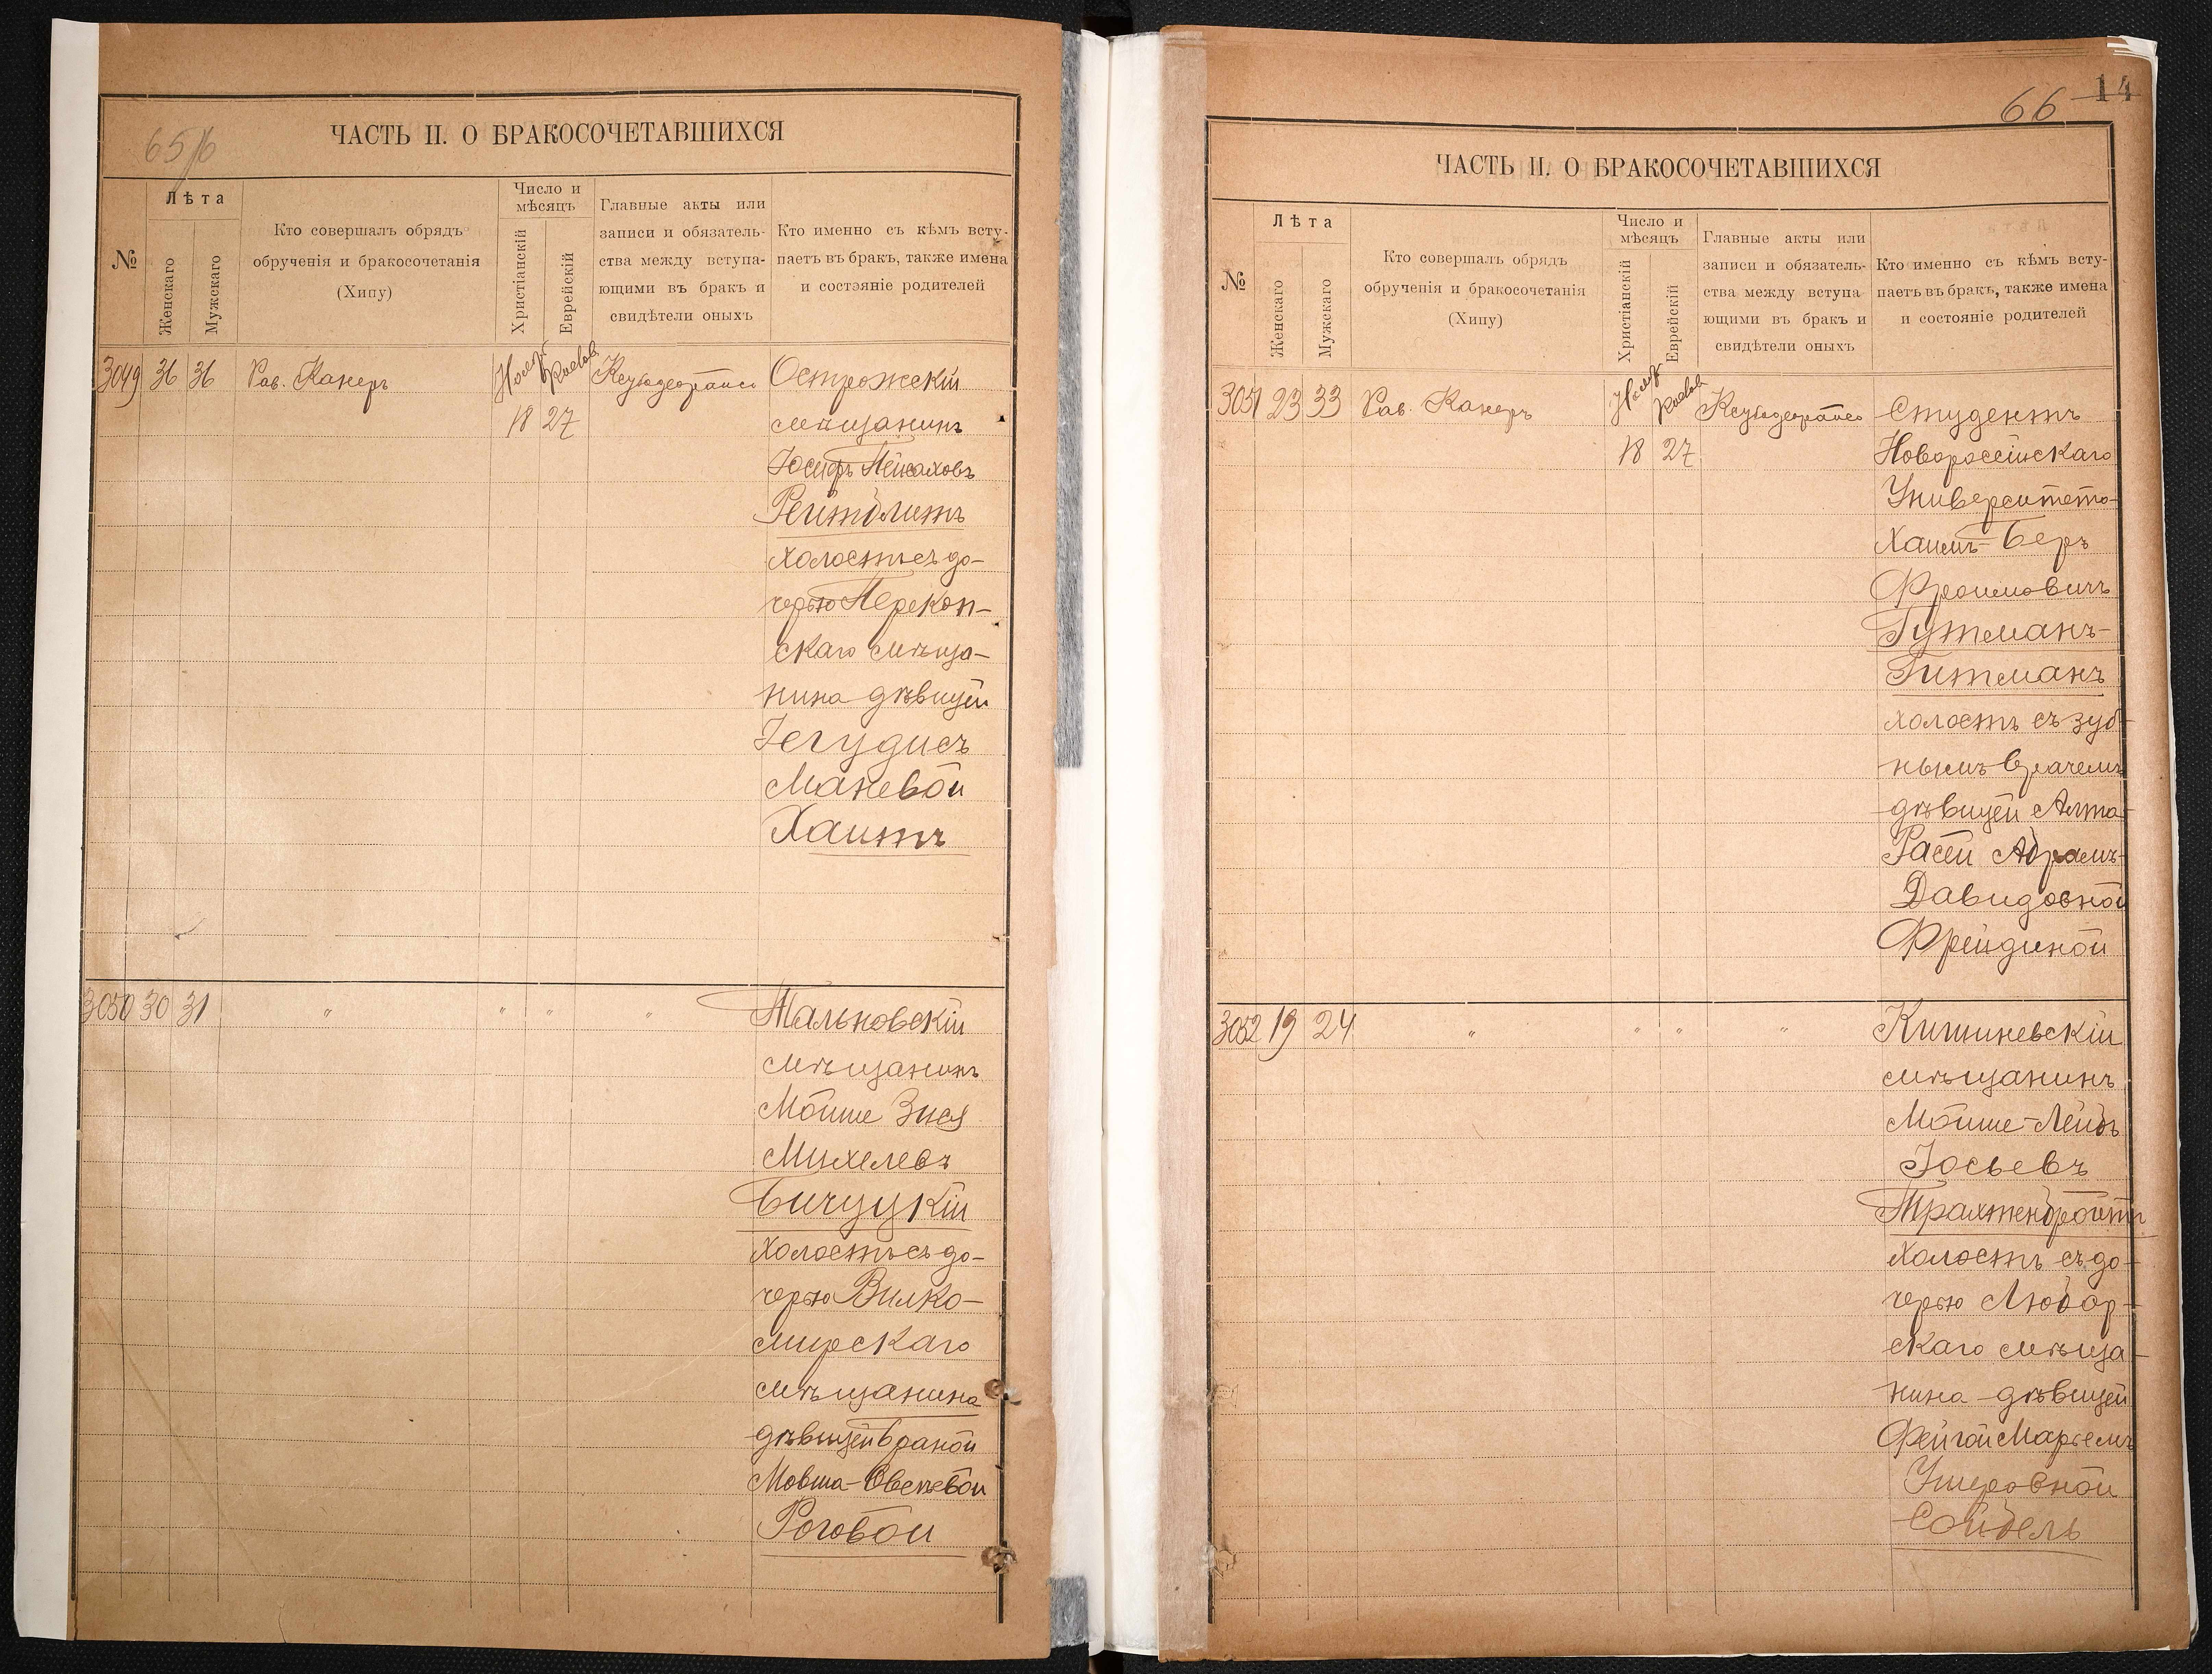 65/6
ЧАСТЬ II. О БРАКОСОЧЕТАВШИХСЯ
№
Лѣта
Женскаго
Мужскаго
Кто совершалъ обрядъ
обрученія и бракосочетанія
(Хипу)
Число и
мѣсяцъ
Христіанскій
Еврейскій
Главные акты или
записи и обязатель-
ства между вступа-
ющими въ бракъ и
свидѣтели оныхъ
Кто именно съ кѣмъ всту-
паетъ въ бракъ, также имена
и состояніе родителей
3049 36 36 Рав. Канеръ
18 27
Острожскій
мѣщанинъ
Іосифъ Пейсаховъ
Рейтблитъ
холостъ съ до-
черью Перекоп-
скаго мѣща-
нина дѣвицей
Іегудисъ
Маневой
Хаитъ
3050 30 31 " " " "
Тальновскій
мѣщанинъ
Мойше Зися
Михелевъ
Бичуцкій
холостъ съ до-
черью Вилко-
мирскаго
мѣщанина
дѣвицей Браной
Мовша-Овсеевой
Роговой
66 14
ЧАСТЬ II. О БРАКОСОЧЕТАВШИХСЯ
№
Лѣта
Женскаго
Мужскаго
Кто совершалъ обрядъ
обрученія и бракосочетанія
(Хипу)
Число и
мѣсяцъ
Христіанскій
Еврейскій
Главные акты или
записи и обязатель-
ства между вступа-
ющими въ бракъ и
свидѣтели оныхъ
Кто именно съ кѣмъ всту-
паетъ въ бракъ, также имена
и состояніе родителей
3051 23 33 Рав. Канеръ
18 27
Студентъ
Новоросійскаго
Университета
Хаимъ-Беръ
Фроимовичъ
Гутманъ-
Гитманъ
холостъ съ зуб-
нымъ врачемъ
дѣвицей Алта-
Расей Абрамъ-
Давидовной
Фрейдиной
3052 19 24 " " " "
Кишиневскій
мѣщанинъ
Мойше-Лейбъ
Іосьевъ
Трахтенбройтъ
холостъ съ до-
черью Любар-
скаго мѣща-
нина дѣвицей
Фейгой Марьемъ
Ушеровной
Сойбель